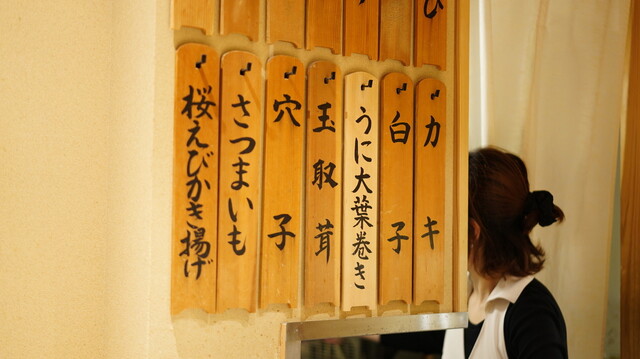 カキ
白子
うに大葉巻き
玉取茸
穴子
さつまいも
桜えびかき揚げ